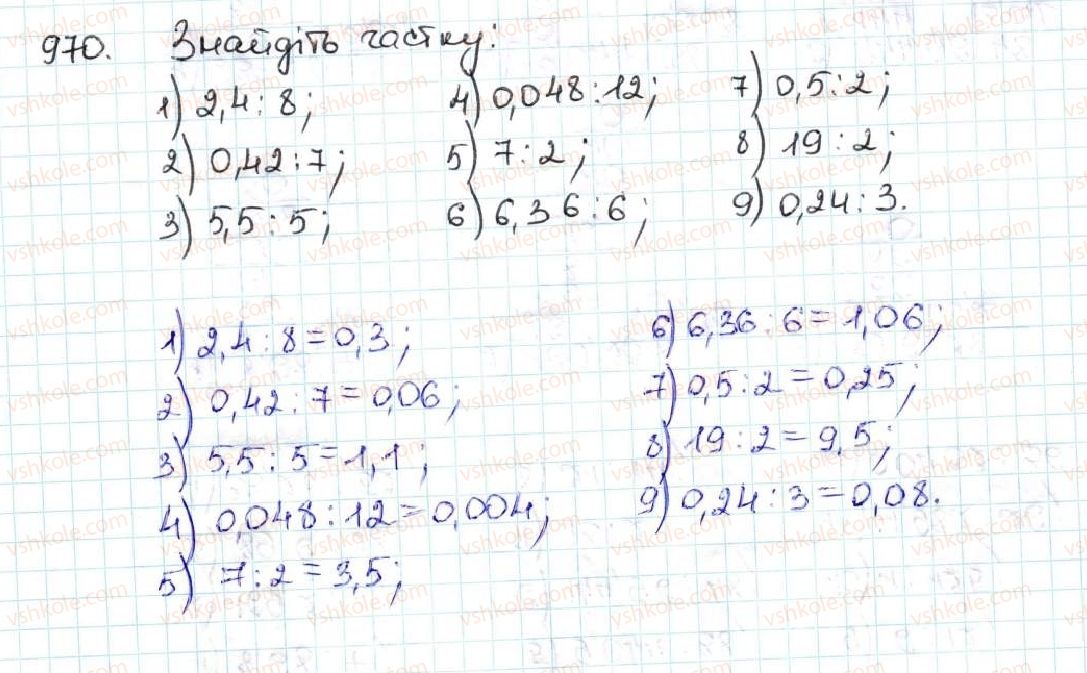 970. Знайдіть частку:
1) 2,4 : 8; 4) 0,048 : 12; 7) 0,5 : 2;
2) 0,42 : 7; 5) 7 : 2; 8) 19 : 2;
3) 5,5 : 5; 6) 6,36 : 6; 9) 0,24 : 3.
1) 2,4 : 8 = 0,3;
2) 0,42 : 7 = 0,06;
3) 5,5 : 5 = 1,1;
4) 0,048 : 12 = 0,004;
5) 7 : 2 = 3,5;
6) 6,36 : 6 = 1,06;
7) 0,5 : 2 = 0,25;
8) 19 : 2 = 9,5;
9) 0,24 : 3 = 0,08.
vshkole.com